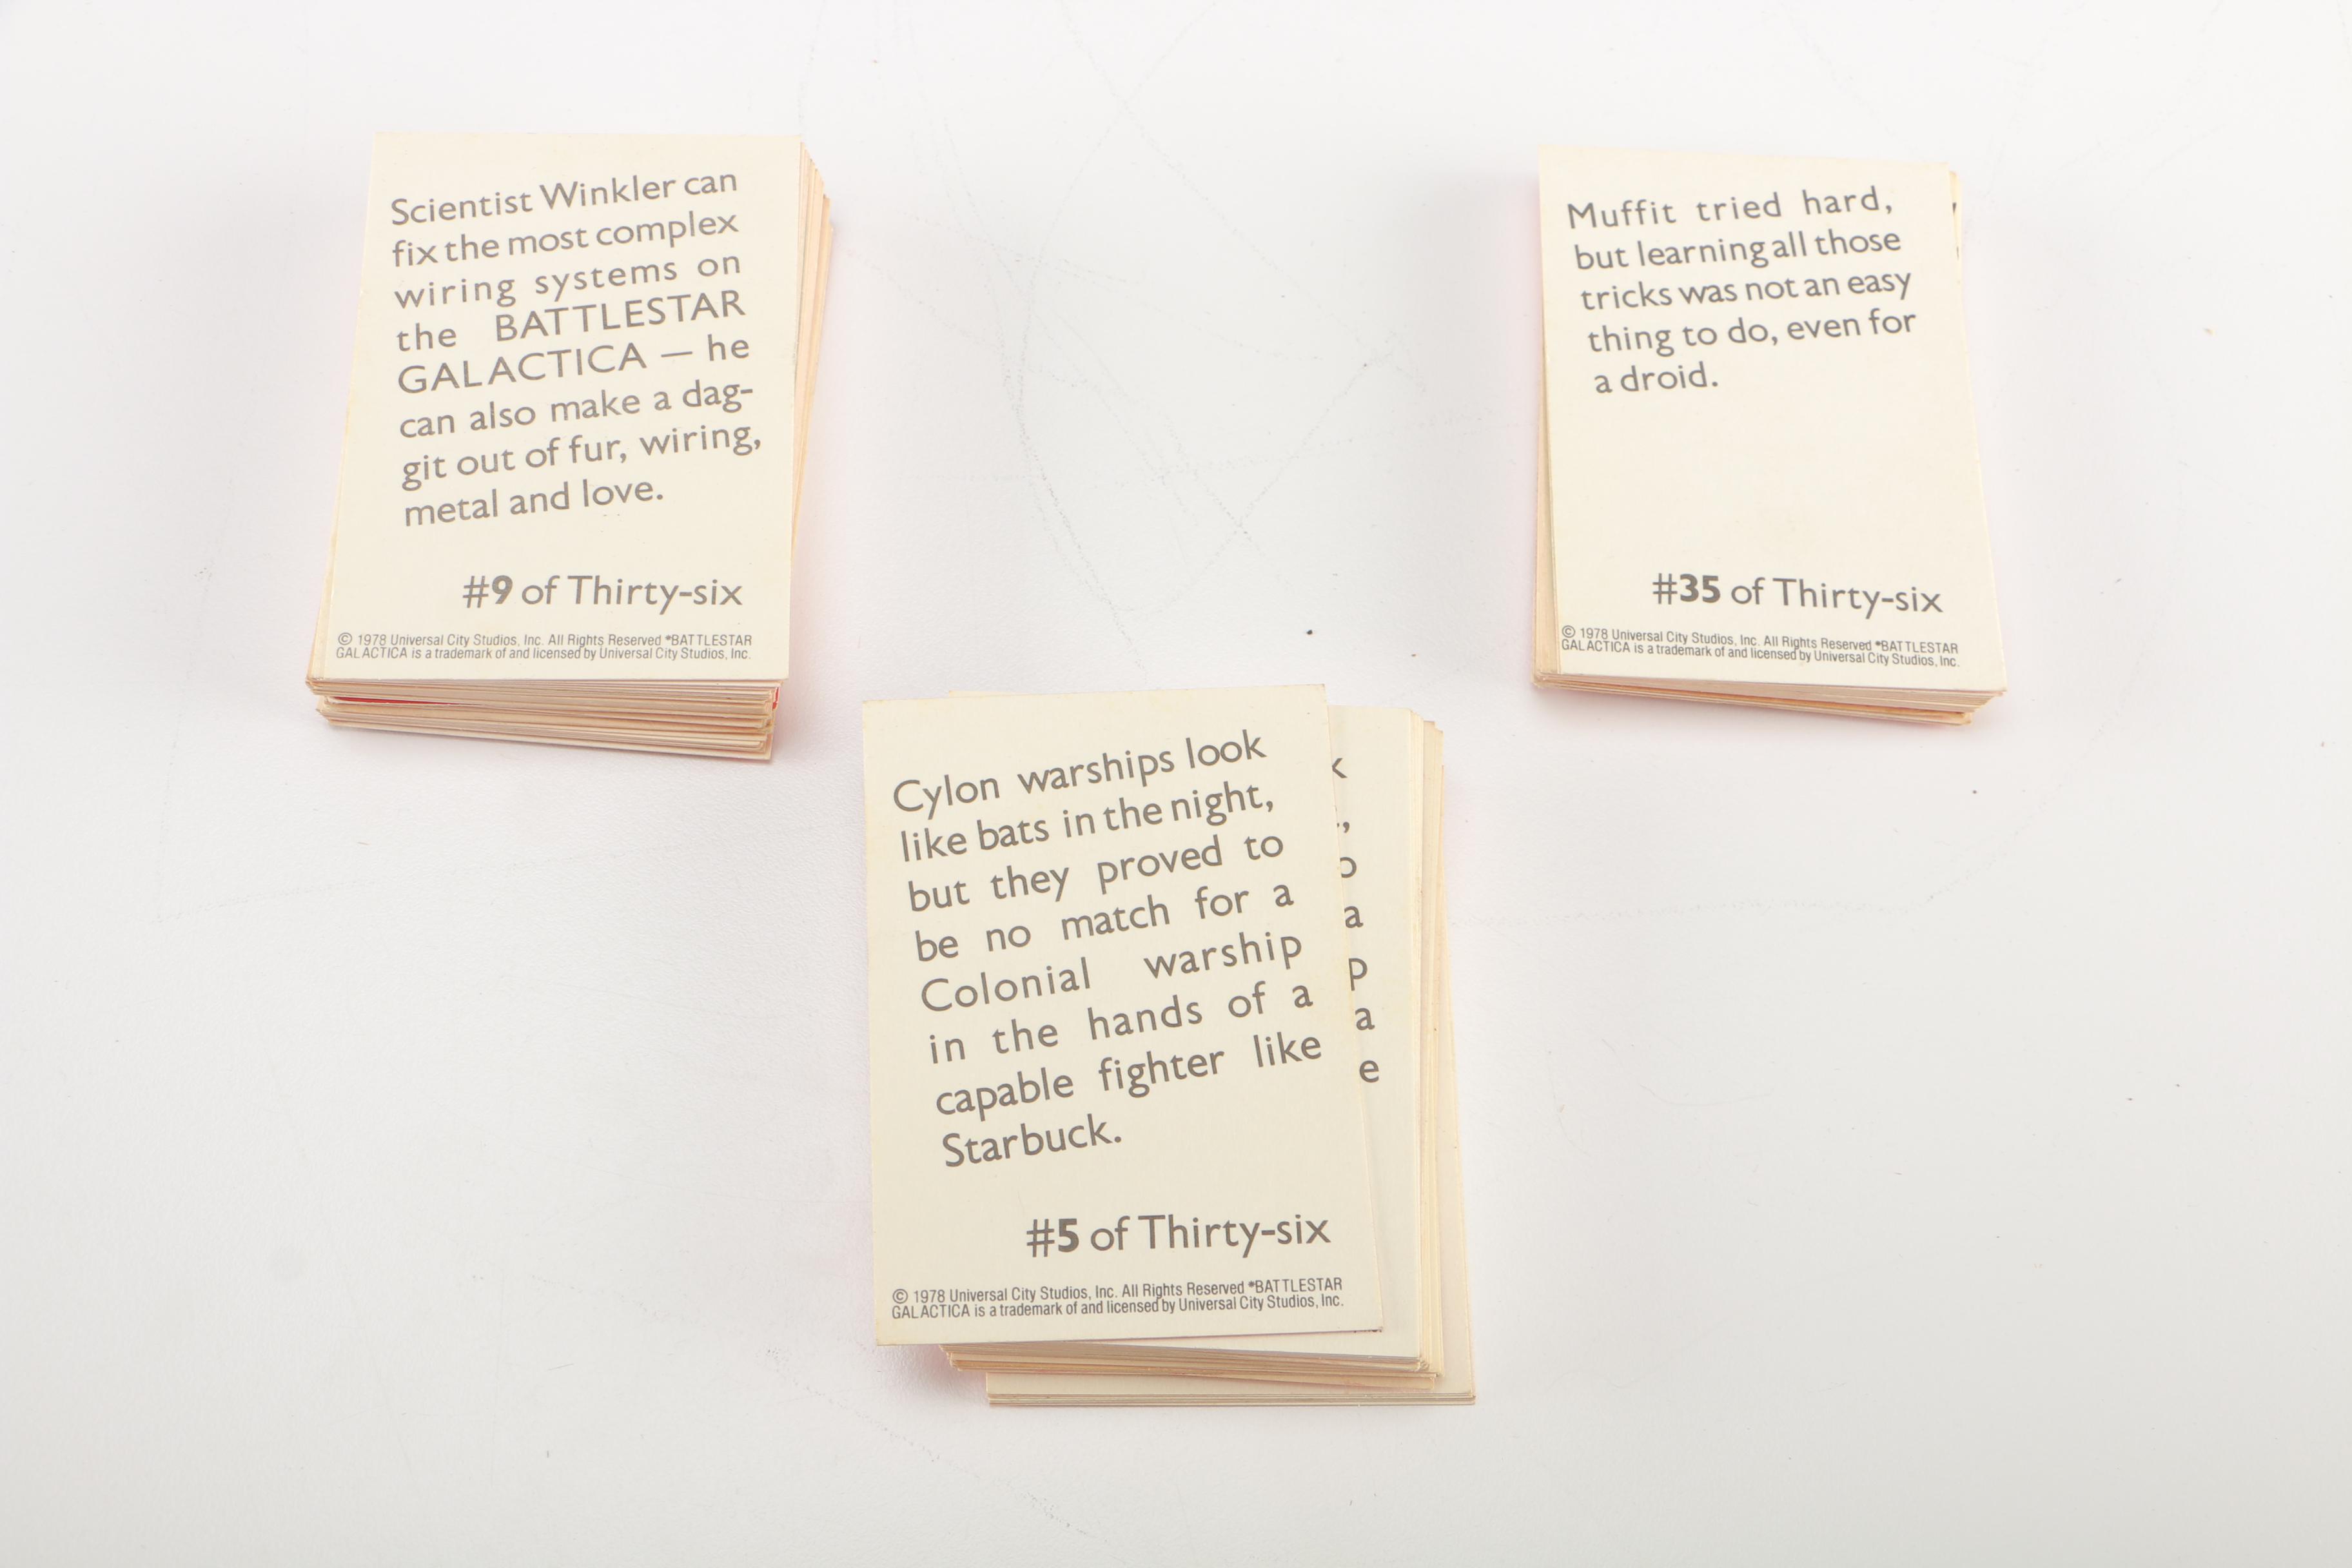 Scientist Winkler can
fix the most complex
wiring systems on
the BATTLESTAR
GALACTICA — he
can also make a dag-
git out of fur, wiring,
metal and love.
#9 of Thirty-six
© 1978 Universal City Studios, Inc. All Rights Reserved *BATTLESTAR
GALACTICA is a trademark of and licensed by Universal City Studios, Inc.
Muffit tried hard,
but learning all those
tricks was not an easy
thing to do, even for
a droid.
#35 of Thirty-six
© 1978 Universal City Studios, Inc. All Rights Reserved *BATTLESTAR
GALACTICA is a trademark of and licensed by Universal City Studios, Inc.
Cylon warships look
like bats in the night,
but they proved to
be no match for a
Colonial warship
in the hands of a
capable fighter like
Starbuck.
#5 of Thirty-six
© 1978 Universal City Studios, Inc. All Rights Reserved *BATTLESTAR
GALACTICA is a trademark of and licensed by Universal City Studios, Inc.